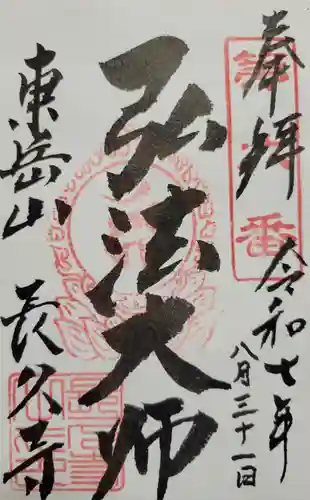 奉拝
令和七年
八月三十一日
弘法大師
東岳山
長久寺